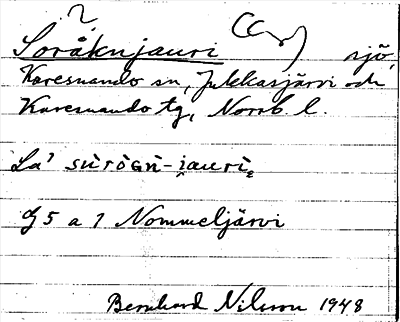 ?
Soråknjauri sjö,
Karesuando sn, Jukkasjärvi och
Karesuando tg, Norrb. l.
La' sùròGN-i̯aurì.
G5 a 1 Nommeljärvi
Bernhard Nilsson 1948